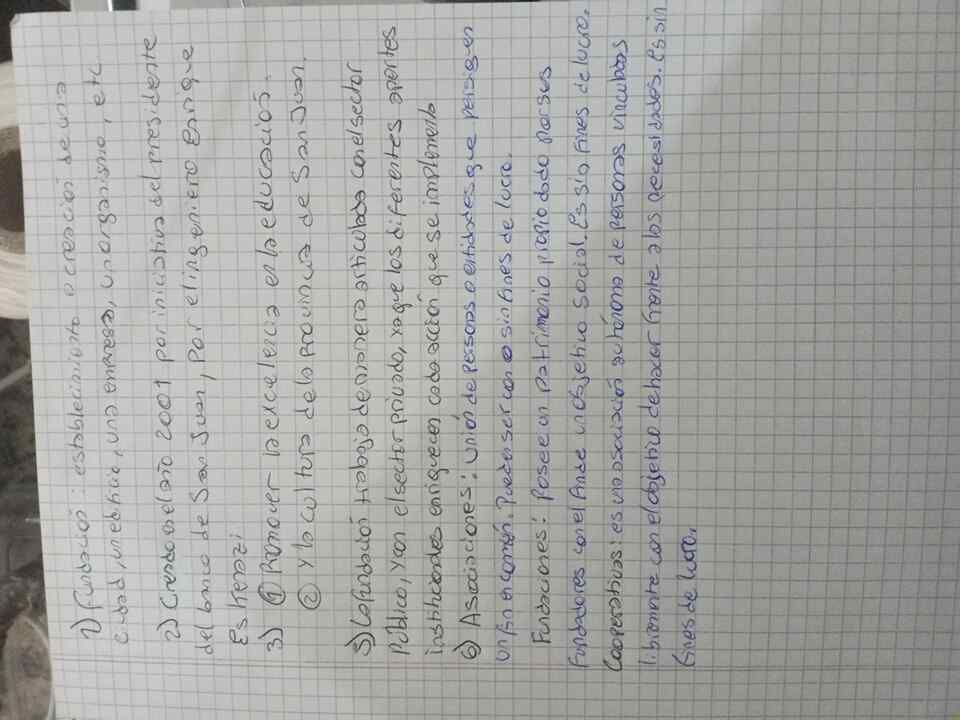 1) fundación: establecimiento o creación de una
ciudad, un edificio, una empresa, un organismo, etc
2) Creada en el año 2001 por iniciativa del presidente
del banco de San Juan, Por el ingeniero Enrique
Eskenazi
3) ① Promover la excelencia en la educación.
② y la cultura de la provincia de San Juan.
5) La fundación trabaja de manera articulada con el sector
público, y con el sector privado, ya que los diferentes aportes
institucionales enriquecen cada acción que se implementa
6) Asociaciones: unión de personas o entidades que persiguen
un fin en común. Pueden ser con o sin fines de lucro.
Fundaciones: Poseen un patrimonio propio dado por sus
fundadores con el fin de un objetivo social. Es sin fines de lucro.
Cooperativas: es una asociación autónoma de personas vinculadas
libremente con el objetivo de hacer frente a las necesidades. Es sin
fines de lucro.